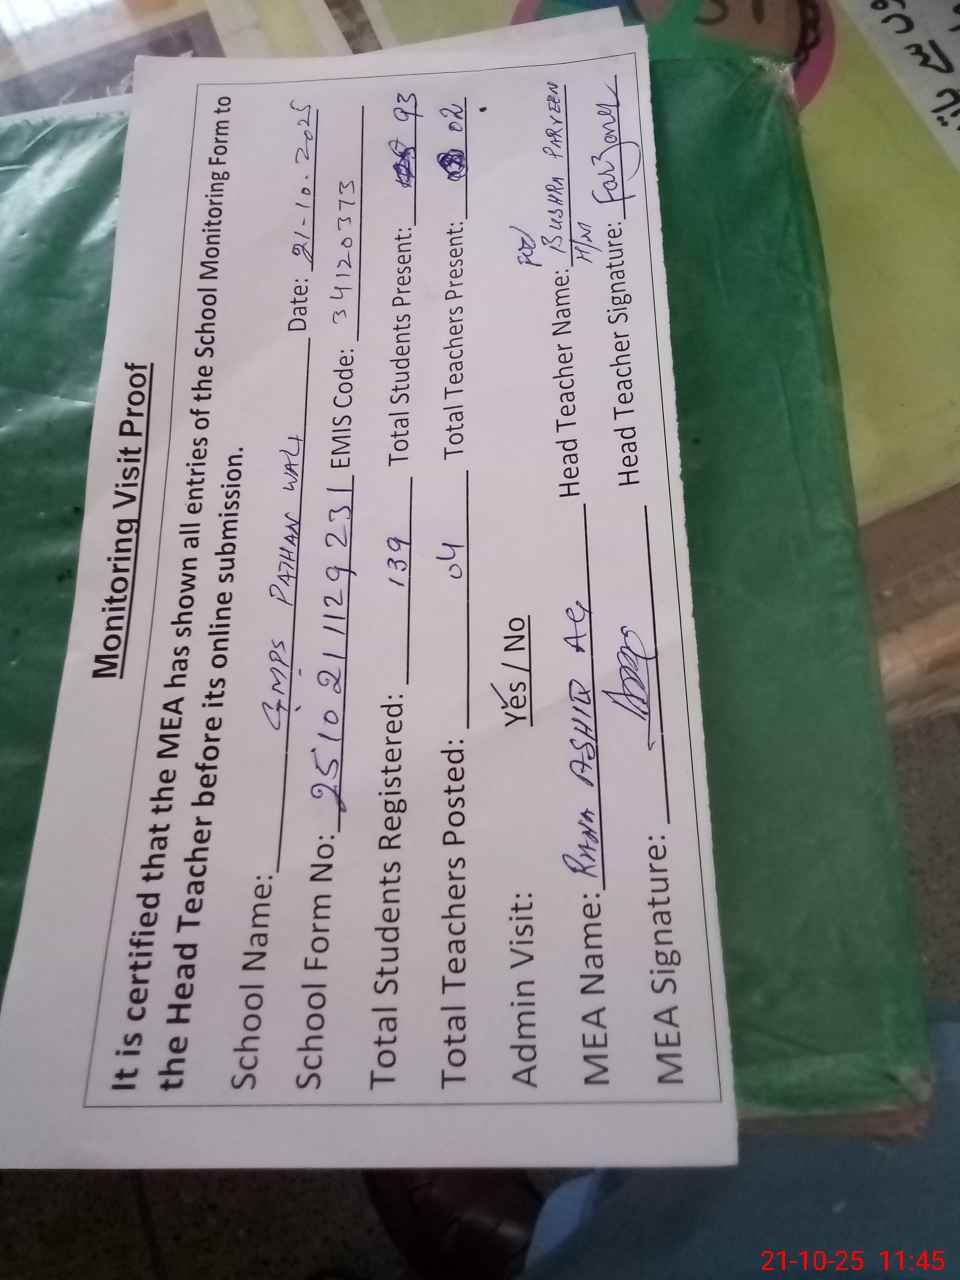 Monitoring Visit Proof
It is certified that the MEA has shown all entries of the School Monitoring Form to
the Head Teacher before its online submission.
School Name: GMPS PATHAN WALI Date: 21-10-2025
School Form No: 2510211129231 EMIS Code: 34120373
Total Students Registered: 139 Total Students Present: 93
Total Teachers Posted: 04 Total Teachers Present: 02
Admin Visit: Yes / No
MEA Name: RANA ASHIQ ALI Head Teacher Name: BUSHRA PARVEEN
MEA Signature: Head Teacher Signature: Farzana
21-10-25 11:45